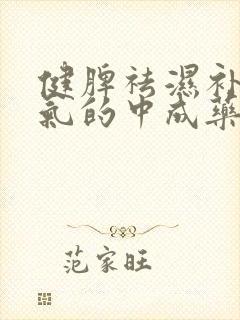 健脾祛濕补
氣的中成藥
范家旺